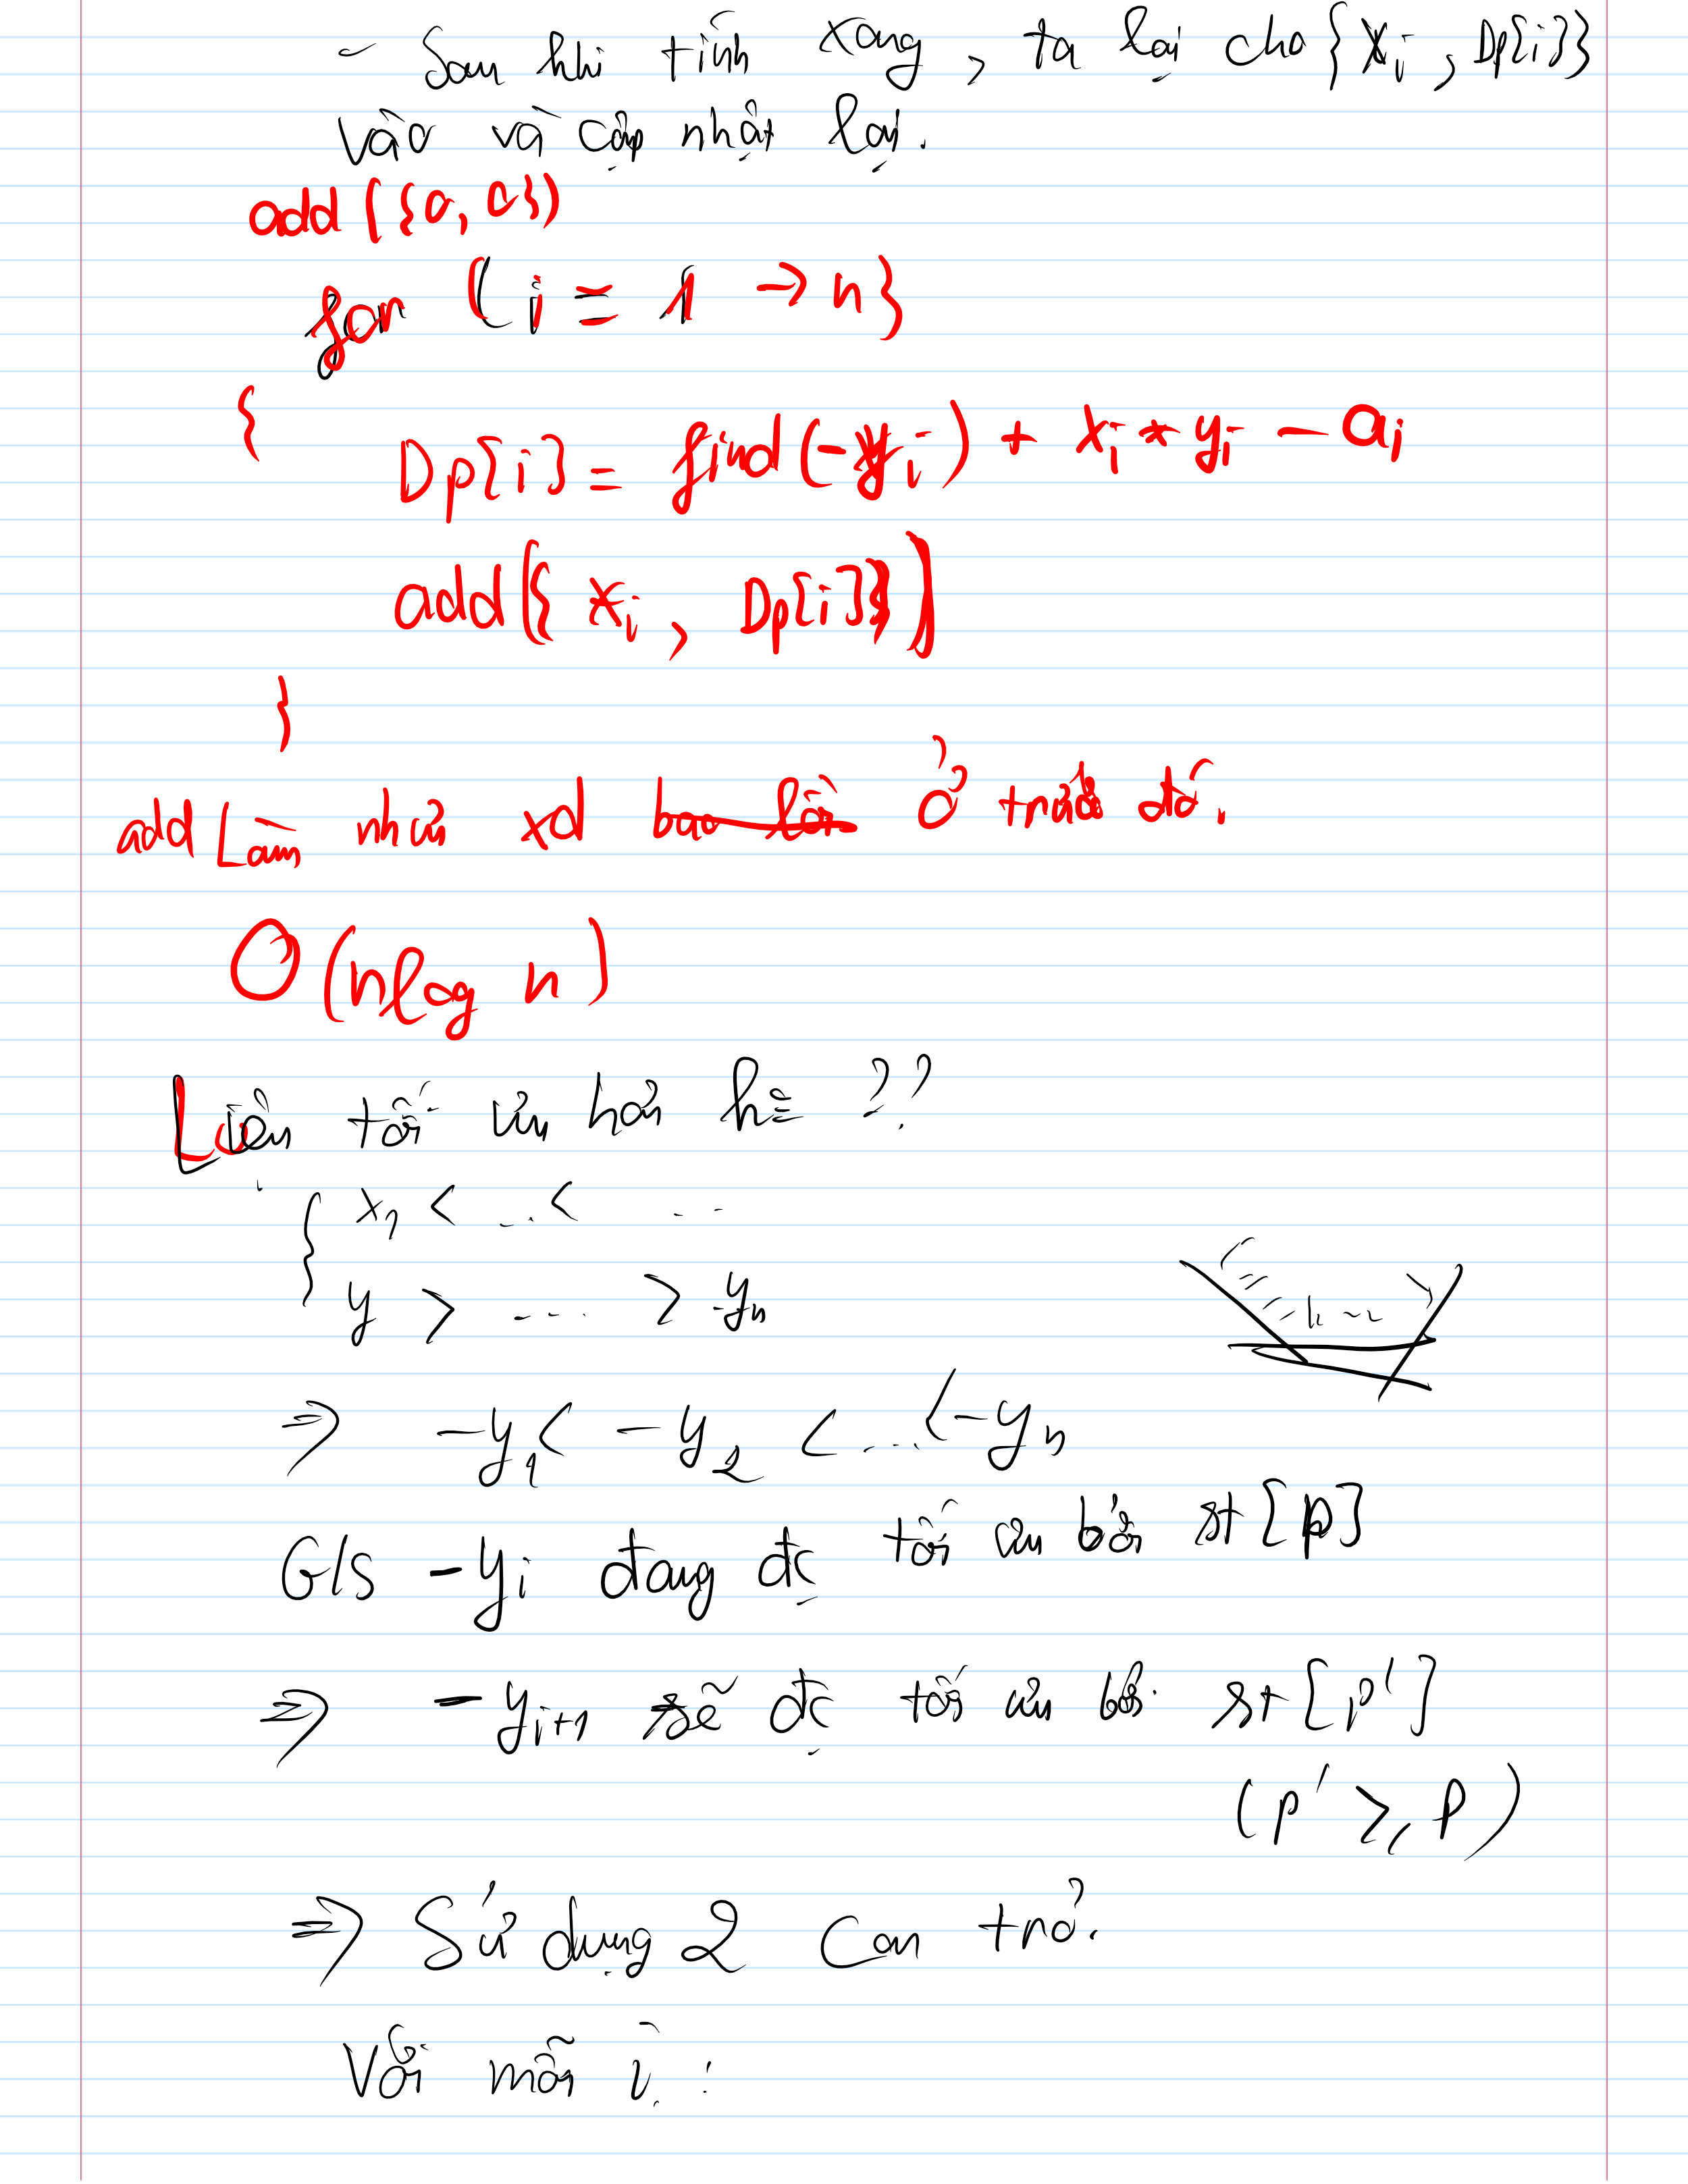 - Sau khi tính xong, ta lại cho {x_i, Dp[i]}
vào và cập nhật lại.
add({0, 0})
for (i = 1 → n)
{
Dp[i] = find(-y_i) + x_i * y_i - a_i
add({x_i, Dp[i]})
}
add Làm như xd ở trước đó.
O(n log n)
tối ưu hơn hẳn ??
{ x_1 < ... < ...
y > .... > y_n
⇒ -y_1 < -y_2 < ... < -y_n
G/s -y_i đang đc tối ưu bởi st[p]
⇒ -y_{i+1} sẽ đc tối ưu bởi st[p']
(p' ≥ p)
⇒ Sử dụng 2 con trỏ.
Với mỗi i :